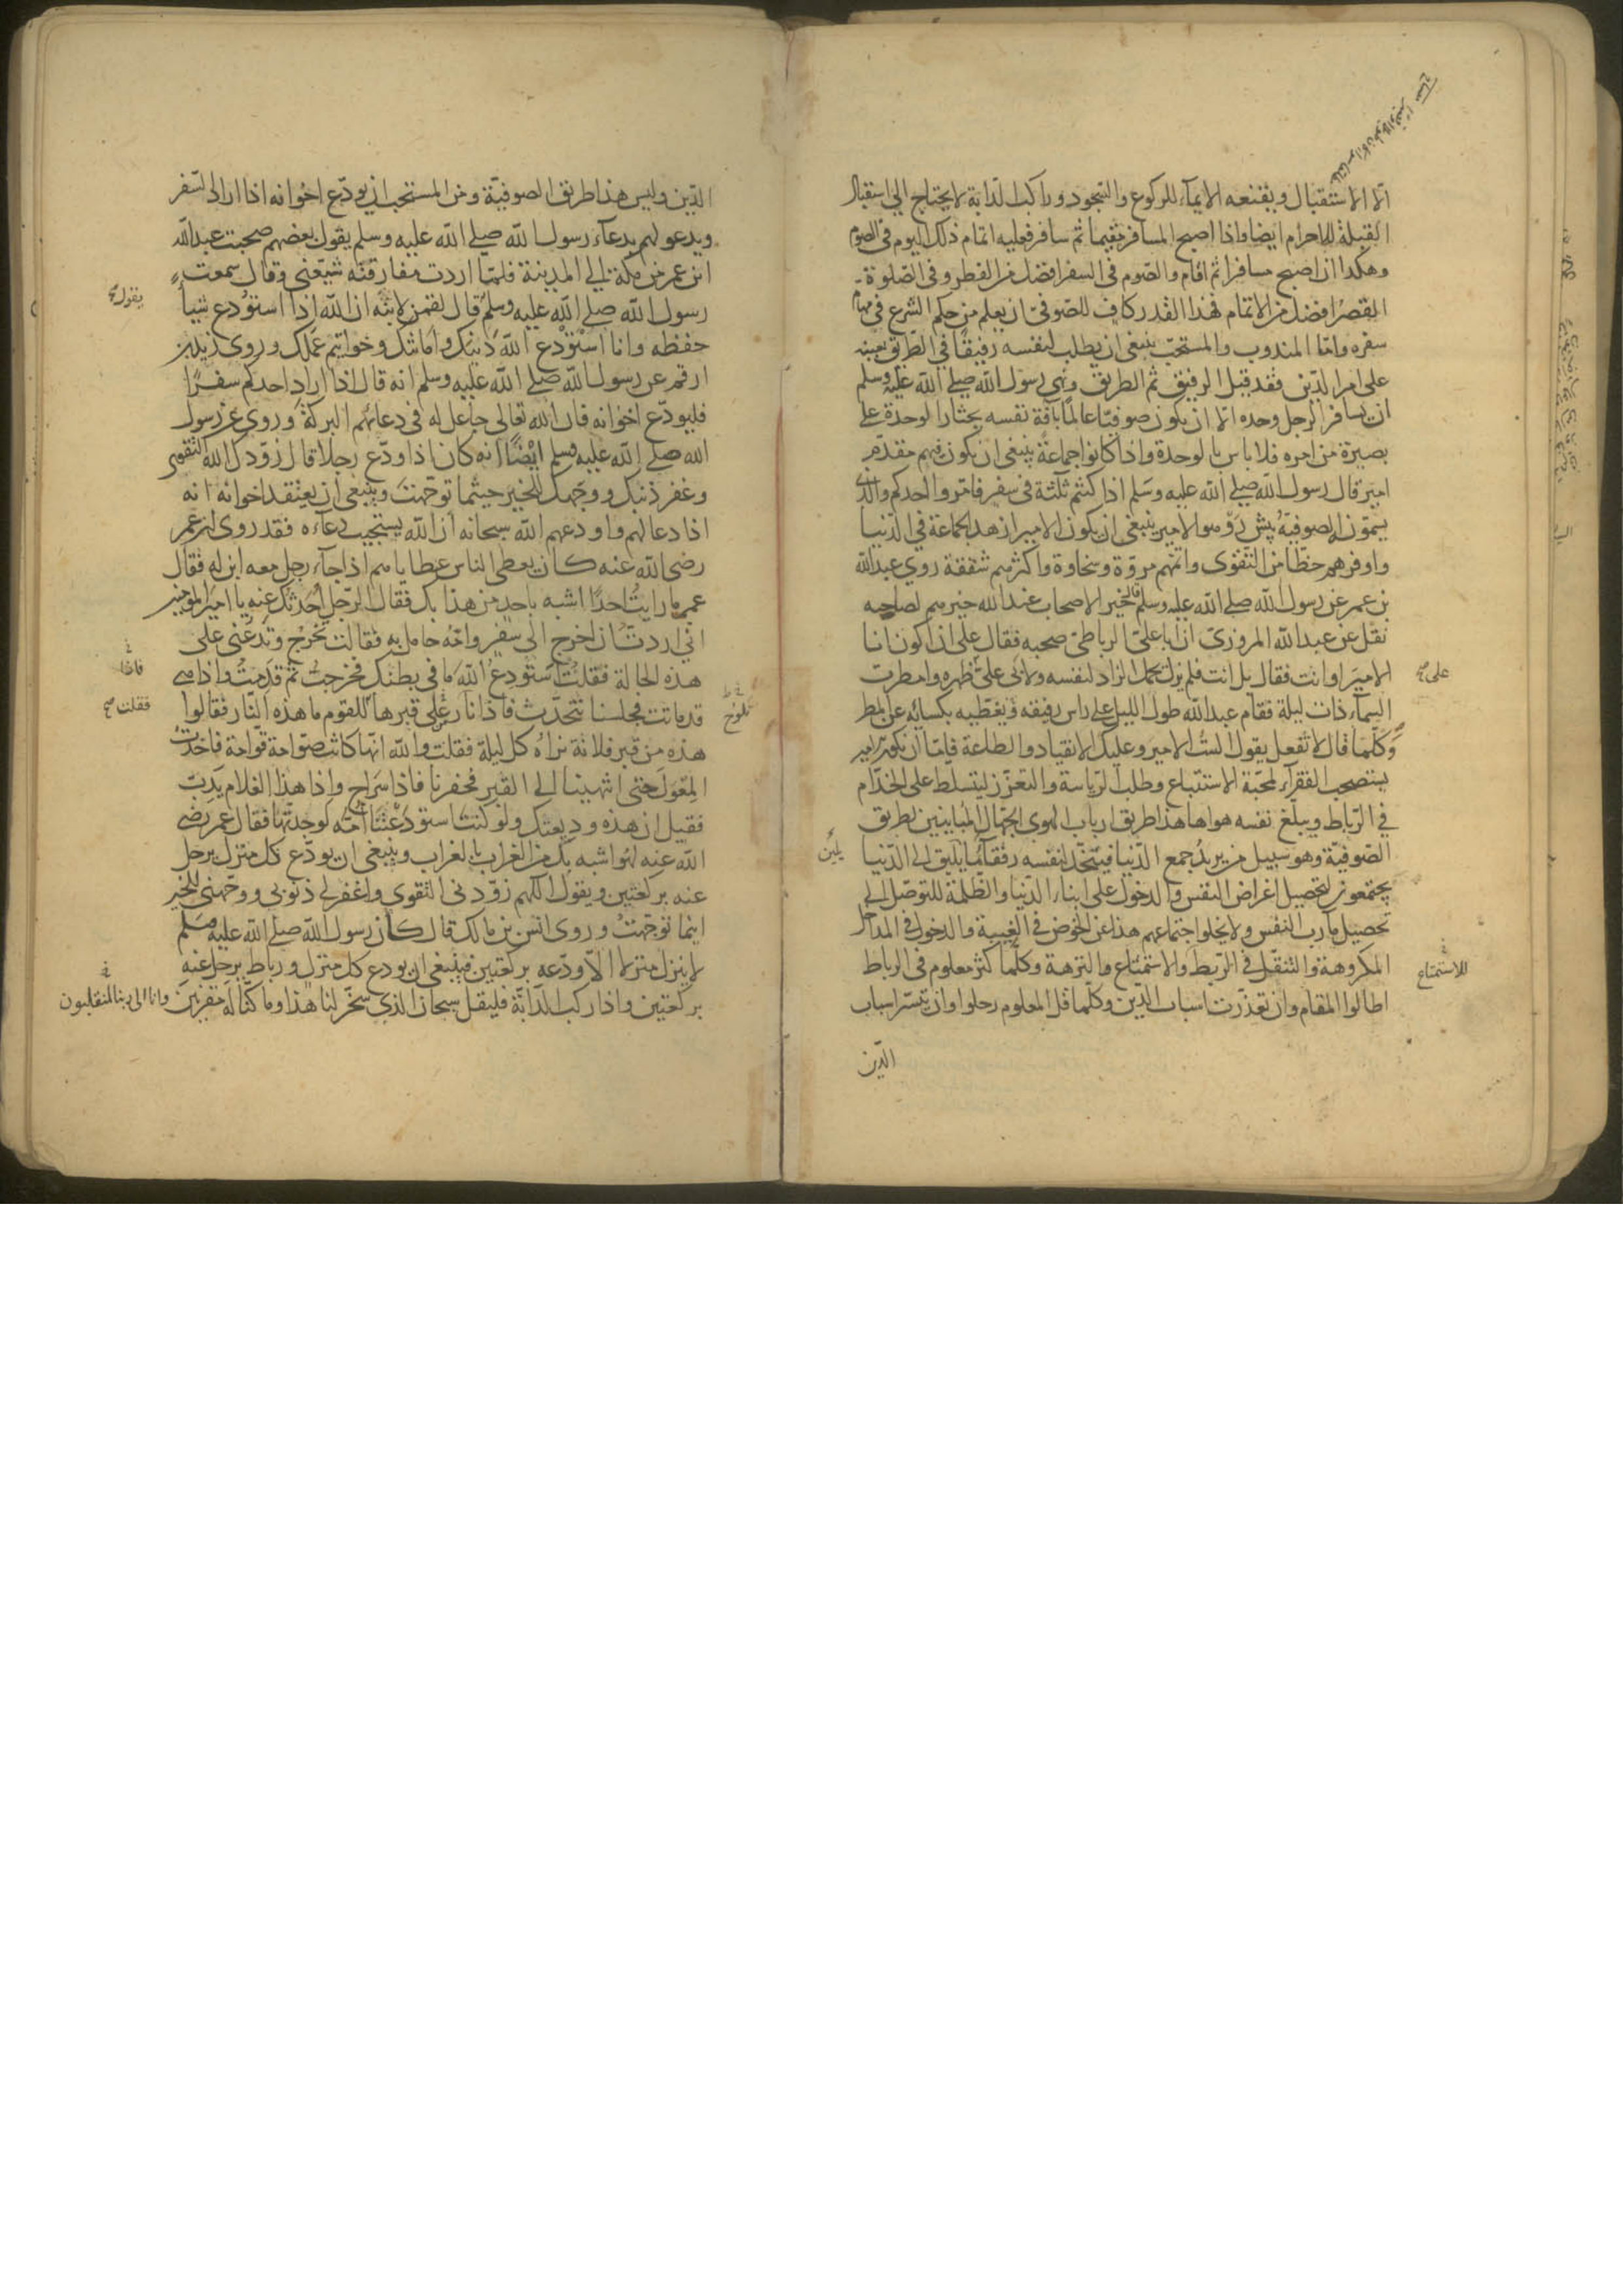 الا الاستقبال ويقنعه الايماء للركوع والسجود وراكب الدابة لا يحتاج الى استقبال
القبلة للاحرام ايضا واذا اصبح المسافر مقيما ثم سافر فعليه اتمام ذلك اليوم فى الصوم
وهكذا ان اصبح مسافرا ثم اقام والصوم فى السفر افضل من الفطر وفى الصلوة
القصر افضل من الاتمام فهذا القدر كاف للصوفى ان يعلم من حكم الشرع فى مهام
سفره واما المندوب والمستحب ينبغى ان يطلب لنفسه رفيقا فى الطريق يعينه
على امر الدين فقد قيل الرفيق ثم الطريق ونهى رسول الله صلى الله عليه وسلم
ان يسافر الرجل وحده الا ان يكون صوفيا عالما بآفة نفسه يختار الوحدة على
بصيرة من امره فلا باس بالوحدة واذا كانوا جماعة ينبغى ان يكون فيهم مقدم
امير قال رسول الله صلى الله عليه وسلم اذا كنتم ثلثة فى سفر فامروا احدكم والذى
يسمونه الصوفية پيش رو هو الامير ينبغى ان يكون الامير ازهد الجماعة فى الدنيا
واوفرهم حظا من التقوى واتمهم مروة وسخاوة واكثرهم شفقة روى عبد الله
بن عمر عن رسول الله صلى الله عليه وسلم قال خير الاصحاب عند الله خيرهم لصاحبه
نقل عن عبد الله المروزى ان ابا على الرباطى صحبه فقال على ان اكون انا
الامير او انت فقال بل انت فلم يزل يحمل الزاد لنفسه ولابى على على ظهره وامطرت
على صح
السماء ذات ليلة فقام عبد الله طول الليل على راس رفيقه ويغطيه بكسائه عن المطر
وكلما قال لا تفعل يقول الست الامير وعليك الانقياد والطاعة فاما ان يكون امير
يستصحب الفقراء لمحبة الاستتباع وطلب الرياسة والتعزز ليتسلط على الخدام
فى الرباط ويبلغ نفسه هواها هذا طريق ارباب الهوى الجهال المباينين لطريق
الصوفية وهو سبيل من يريد جمع الدنيا فيتخذ لنفسه رفقآء مايلين الى الدنيا
يجتمعون لتحصيل اغراض النفس والدخول على ابناء الدنيا والظلمة للتوصل الى
تحصيل مآرب النفس ولا يخلوا اجتماعهم هذا عن الخوض فى الغيبة والدخول فى المداخل
المكروهة والتنقل فى الربط والاستمتاع والنزهة وكلما كثر معلوم فى الرباط
للاستمتاع
اطالوا المقام وان تعذرت اسباب الدين وكلما قل المعلوم رحلوا وان تيسر اسباب
الدين
الدين وليس هذا طريق الصوفية ومن المستحب ان يودع اخوانه اذا اراد السفر
ويدعو لهم بدعاء رسول الله صلى الله عليه وسلم يقول بعضهم صحبت عبد الله
ابن عمر من مكة الى المدينة فلما اردت مفارقته شيعنى وقال سمعت
رسول الله صلى الله عليه وسلم قال لقمن لابنه ان الله اذا استودع شيا
يقول صح
حفظه وانا استودع الله دينك وامانتك وخواتيم عملك وروى زيد بن
ارقم عن رسول الله صلى الله عليه وسلم انه قال اذا اراد احدكم سفرا
فليودع اخوانه فان الله تعالى جاعل له فى دعائهم البركة وروى عن رسول
الله صلى الله عليه وسلم ايضا انه كان اذا ودع رجلا قال زودك الله التقوى
وغفر ذنبك ووجهك للخير حيثما توجهت وينبغى ان يعتقد اخوانه انه
اذا دعا لهم واودعهم الله سبحانه ان الله يستجيب دعاءه فقد روى ان عمر
رضى الله عنه كان يعطى الناس عطاياهم اذا جاء رجل معه ابن له فقال
عمر ما رايت احدا اشبه باحد من هذا بك فقال الرجل احدثك عنه يا امير المومنين
انى اردت ان اخرج الى سفر وامه حامل به فقالت تخرج وتدعنى على
هذه الحالة فقلت استودع الله ما فى بطنك فخرجت ثم قدمت واذا هى
قد ماتت فجلسنا نتحدث فاذا نار على قبرها للقوم ما هذه النار فقالوا
تلوح
فقلت صح
هذه من قبر فلانة نراه كل ليلة فقلت والله انها كانت صوامة قوامة فاخذت
المعول حتى انتهينا الى القبر فحفرنا فاذا سراج واذا هذا الغلام يدب
فقيل ان هذه وديعتك ولو كنت استودعتنا امه لوجدتها فقال عمر رضى
الله عنه لهو اشبه بك من الغراب بالغراب وينبغى ان يودع كل منزل يرحل
عنه بركعتين ويقول اللهم زودنى التقوى واغفر لى ذنوبى ووجهنى للخير
اينما توجهت وروى انس بن مالك قال كان رسول الله صلى الله عليه وسلم
لا ينزل منزلا الا ودعه بركعتين فينبغى ان يودع كل منزل ورباط يرحل عنه
بركعتين واذا ركب الدابة فليقل سبحان الذى سخر لنا هذا وما كنا له مقرنين وانا الى ربنا لمنقلبون